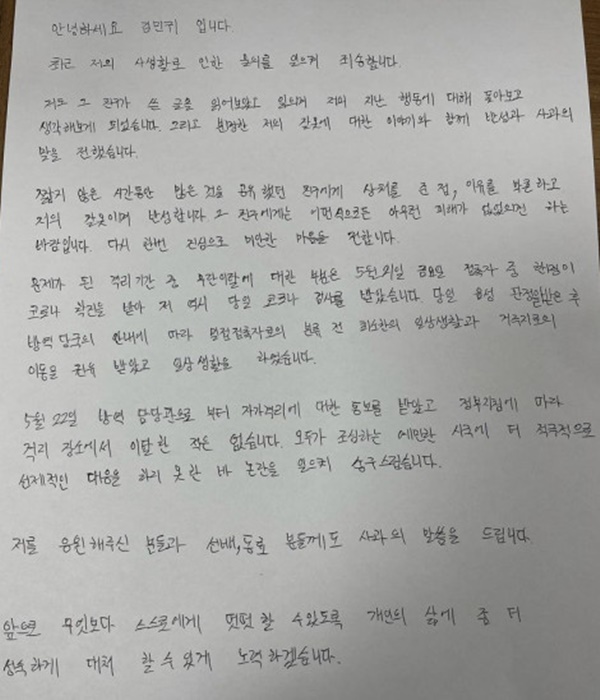 안녕하세요 김민귀 입니다.
최근 저의 사생활로 인한 논의를 일으켜 죄송합니다.
저도 그 친구가 쓴 글을 읽어보았고 읽으며 저의 지난 행동에 대해 돌아보고
생각해보게 되었습니다. 그리고 분명한 저의 잘못에 대한 이야기와 함께 반성과 사과의
말을 전했습니다.
짧지 않은 시간동안 많은 것을 공유했던 친구에게 상처를 준 점, 이유를 불문하고
저의 잘못이며 반성합니다 그 친구에게는 어떤식으로든 아무런 피해가 없었으면 하는
바람입니다. 다시 한번 진심으로 미안한 마음을 전합니다.
문제가 된 격리기간 중 무단이탈에 대한 부분은 5월 21일 금요일 접촉자 중 한명이
코로나 확진을 받아 저 역시 당일 코로나 검사를 받았습니다. 당일 음성 판정을 받은 후
방역 당국의 안내에 따라 밀접접촉자로의 분류 전 최소한의 일상생활과 거주지로의
이동을 권유 받았고 일상생활을 하였습니다.
5월 22일 방역 담당관으로 부터 자가격리에 대한 통보를 받았고 정부지침에 따라
격리 장소에서 이탈한 적은 없습니다. 모두가 조심하는 예민한 시국에 더 적극적으로
선제적인 대응을 하지 못한 바 논란을 일으켜 송구스럽습니다.
저를 응원해주신 분들과 선배,동료 분들께도 사과의 말씀을 드립니다.
앞으로 무엇보다 스스로에게 떳떳할 수있도록 개인의 삶에 좀 더
성숙하게 대처 할 수 있게 노력하겠습니다.